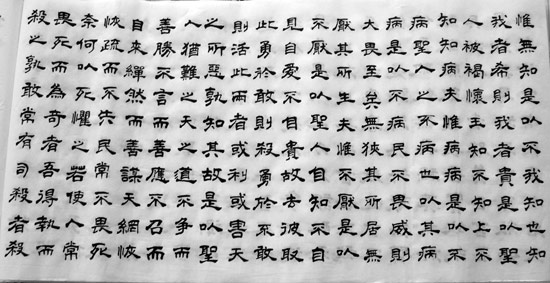 惟無知是以不我知也知
我者希則我者貴是以聖
人被褐懷玉知不知上不
知知病夫惟病病是以不
病聖人之不病也以其病
病是以不病民不畏威則
大畏至矣無狹其所居無
厭其所生夫惟不厭是以
不厭是以聖人自知不自
見自愛不自貴故去彼取
此勇於敢則殺勇於不敢
則活此兩者或利或害天
之所惡孰知其故是以聖
人猶難之天之道不爭而
善勝不言而善應不召而
自來繟然而善謀天網恢
恢疏而不失民常不畏死
奈何以死懼之若使人常
畏死而為奇者吾得執而
殺之孰敢常有司殺者殺